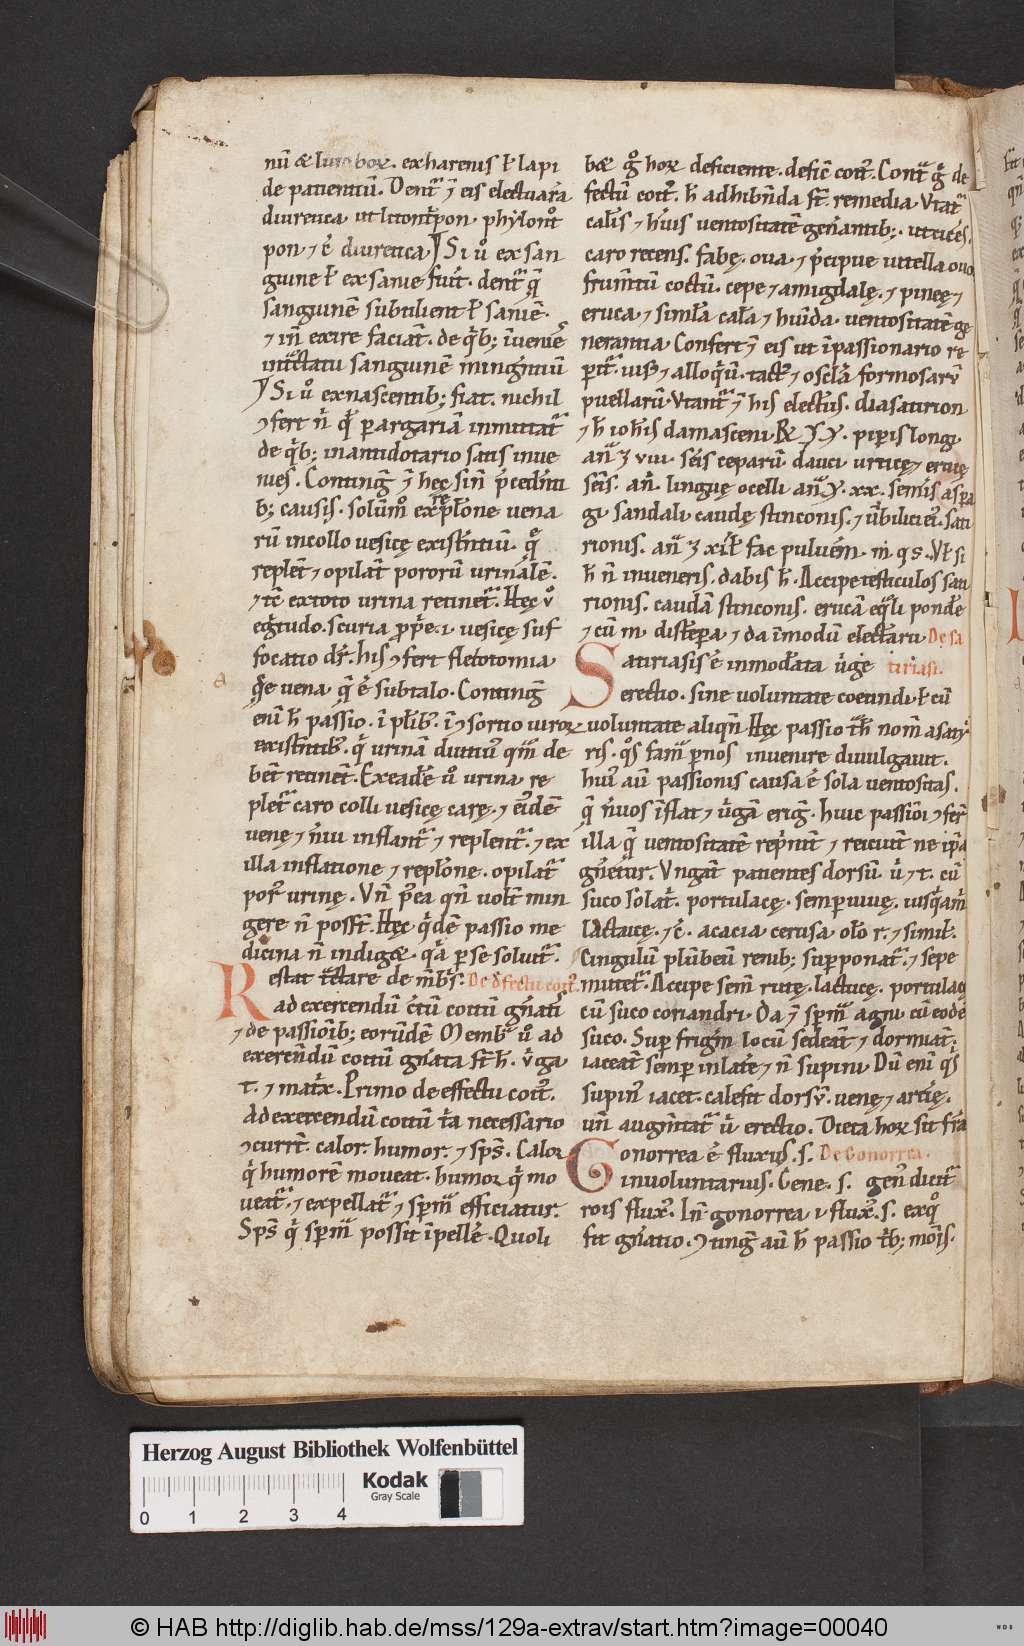 nū & lumboꝝ. ex harenis ł lapi
de patientiū. Dent᷑ ī eis electuaria
diuretica ut litontᵖpon phylont᷒
pon ⁊ ē diuretica Si u᷒ ex san
guine ł ex sanie fuīt. dent᷑ q̄
sanguinē subtilient ł saniē.
⁊ in̄ exire faciāt. de qͥb; īueniēs
intͣctatu sanguinē mingentiū
Si u᷒ ex nascentib; fiat. nichil
ꝯfert n̄ qd̄ ꝑ argariā inmittat᷑
de qͥb; in antidotario satis inue
nies. Continḡ ī hec sin̄ p̄cedēti
b; causis. solūm᷒ ex repłone uena
rū in collo uesicę existentiū. q̄
replēt ⁊ opilāt pororū urinalē.
⁊ tc̄ ex toto urina retinet᷑. Hęc ū
egͥtudo. scuria ꝓpͥe. i. uesicę suf
focatio dr̄. his ꝯfert fletotomia
q̄ fit de uena q̄ ē sub talo. Continḡ
enī h̄ passio. ī plīb᷒. ī ꝯsortio uiroꝝ
existentib᷒. qͥ urinā diuti᷒ qm̄ de
bēt retinēt. Excedēte u᷒ urina re
plet᷑ caro colli uesicę carę. ⁊ eiᷤdē
uenę ⁊ nͥui inflant᷑ ⁊ replent᷑. ⁊ ex
illa inflatione ⁊ repłone. opilat᷑
por᷒ urinę. Vn̄ p᷒ea qn̄ uolt̄ min
gere n̄ posst̄. Hęc qͥdē passio me
dicina n̄ indig&. qͥa ꝑ se soluit᷑.
Restat tͣctare de mb̄ris. De defectu coit᷒.
ad exercendū cͥtū coitū gn̄ati
⁊ de passioīb; eorūdē Membͣ u᷒ ad
exercendū coitū gn̄ata st̄ h̄. uͥga
t. ⁊ matͥx. Primo de effectu coit᷒.
Ad exercendū coitū tͥa necessario
ꝯcurrt̄. calor. humor. ⁊ sps̄. Calor
qͥ humorē moueat. humor qͥ mo
ueat᷑. ⁊ expellat᷑ ⁊ sꝑm̄ efficiatur.
Sps̄ qͥ sꝑm̄ possit īpellere. Quoli
b& g᷒ hoꝝ deficiente. deficͥ coit᷒. Contͣ g᷒ de
fectū coit᷒. h̄ adhibn̄da st̄ remedia Vtat᷑
calīs ⁊ hūis uentositatē gen̄antib;. ut cices.
caro recens. fabę. oua. ⁊ p̄cipue uitella ouo
frumtū coctū. cepe ⁊ amigdalę. ⁊ pineę ⁊
eruca ⁊ similia calīa ⁊ huīda. uentositatē ge
nerantia Confert ī eis ut ī passionario re
ꝑit᷑. uisꝰ ⁊ alloqͥū. tact᷒ ⁊ oscła formosarū
puellarū Vtant᷑ ī his electīs. diasatirion
⁊ h̄ ioh̄is damasceni ℞. piꝑis longi
an̄ ʒ viii. seīs ceparū dauci urticę ⁊ erucę
seīs. an̄. linguę ocelli an̄. xx. seīs aspa
gi sandali caudę stinconis. ⁊ ūbiliciei᷒. sati
rionis. an̄ ʒ xii. fac puluēm. m. qs. Vł si
h̄ n̄ inueneris. dabis h̄. Accipe testiculos sati
rionis. caudā stinconis. erucā eqͣli pondͤe
⁊ cū m distēpera ⁊ da ī modū electarii De sa
Satiriasis ē inmodͤata uͥgę tiriasi.
erectio. sine uoluntate coeundi. ł cū
uoluntate aliqn̄ Hęc passio tͣh̄ nom̄ a satyͥ
ris. q᷒s fam̄ ꝑ nos inuenire diuulgauit.
hui᷒ aū passionis causa ē sola uentositas.
q̄ nͥuos īflat ⁊ uͥgā eriḡ. huic passiōi ꝯfer̄
illa q̄ uentositatē rep̄mit ⁊ reicuit ne ip̄a
gn̄etur. Vngāt patientes dorsū. uͥ ⁊ t. cū
suco solat͛. portulacę. semperuiuę. iusqͥamͥ
lactucę. ⁊ c̄. acacia cerusa oło r. ⁊ simił.
Cingulū plūbeū renib; suꝑponat᷑. ⁊ sepe
mutet᷑. Accipe sem̄ rutę. lactucę. portulacę
cū suco coriandri. Da ī sꝑm̄ agni cū eodē
suco. Suꝑ frigm̄ locū sedeāt ⁊ dormiāt.
iaceāt semꝑ in latere ⁊ n̄ supini Dū enī qͥs
supin᷒ iacet. calefit dorsū. uenę ⁊ artīę.
un̄ augm̄tat᷑ uͥ erectio. Dieta hoꝝ sit frͥa
Gonorrea ē fluxus. s. De Gonorrea.
inuoluntarius. Gene. s. gen᷒ dicit᷑
rois flux᷒. In̄ gonorrea i flux᷒. s. ex q᷒
fit gn̄atio. ꝯtinḡ aū h̄ passio tͥb; mo᷒is.
Herzog August Bibliothek Wolfenbüttel
Kodak
Gray Scale
0 1 2 3 4
© HAB http://diglib.hab.de/mss/129a-extrav/start.htm?image=00040